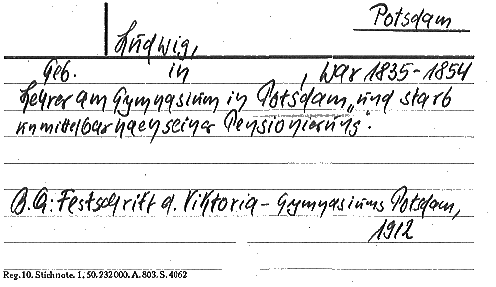 Potsdam
Ludwig,
Geb. in , war 1835-1854
Lehrer am Gymnasium in Potsdam „und starb
unmittelbar nach seiner Pensionierung".
B.A: Festschrift d. Viktoria-Gymnasiums Potsdam,
1912
Reg. 10. Stichnote. 1, 50. 232000. A. 803. S. 4062